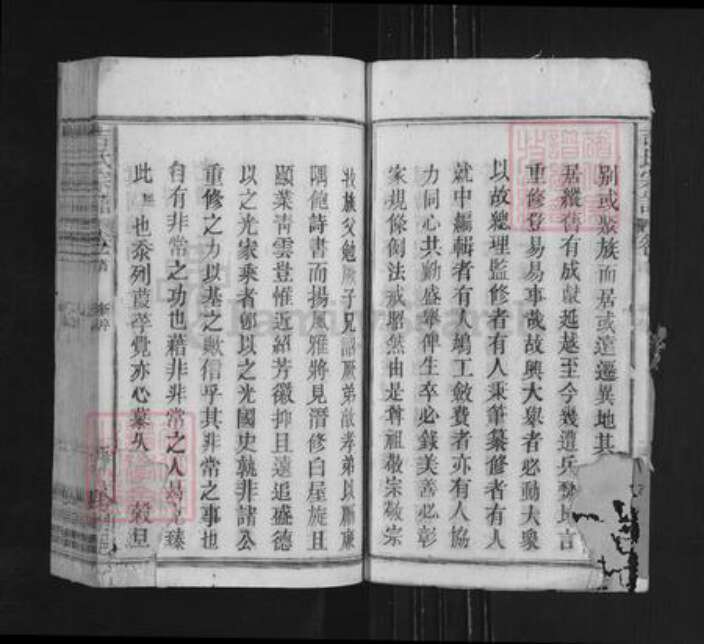 別或聚族而居或遠遷異地其
居縱舊有成獻延越至今幾遭兵燹
言重修登易易事哉故興大舉者必動大衆
以故總理監修者有人秉筆纂修者有人
就中編輯者有人鳩工斂費者亦有人協
力同心共勷盛舉俾生卒必錄美善必彰
家規條例法戒昭然由是尊祖敬宗敬宗
收族父勉厥子兄詔厥弟敦孝弟以厲廉
隅飽詩書而揚風雅將見潛修白屋旋且
顯業青雲豈惟近紹芳徽抑且遠追盛德
以之光家乘者即以之光國史孰非諸公
重修之力以基之歟信乎其非常之事也
自有非常之功也藉非非常之人曷克臻
此 也忝列葭莩覺亦心慕久 穀旦